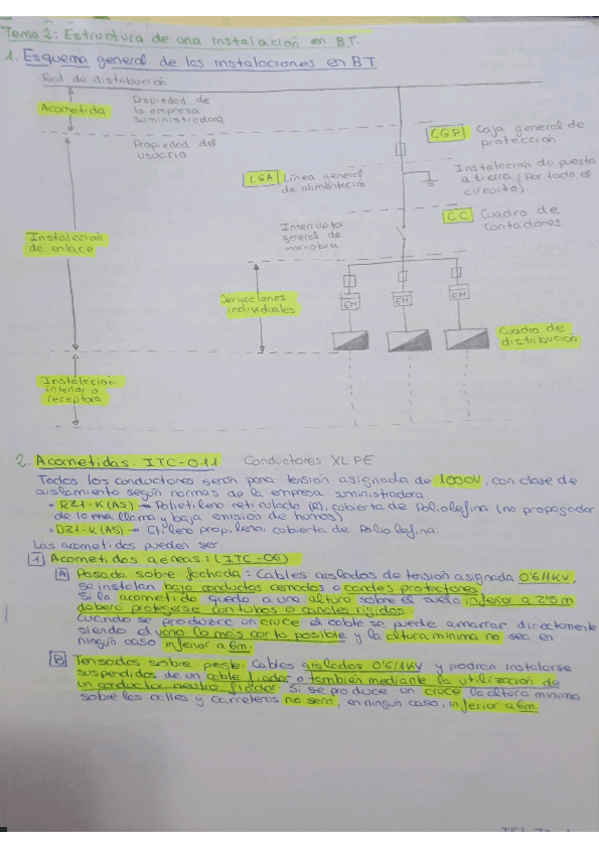 Tema 2: Estructura de una instalación en B.T.
1. Esquema general de las instalaciones en BT
Red de distribución
Acometida
Propiedad de
la empresa
suministradora
CGP
Caja general de
protección
Propiedad del
usuario
LGA
Línea general
de alimentación
Instalación de puesta
a tierra (Por todo el
circuito)
CC
Cuadro de
contadores
Instalación
de enlace
Interruptor
general de
maniobra
Derivaciones
individuales
EM
EM
EM
Cuadro de
distribución
Instalación
interior o
receptora
2. Acometidas. ITC-011 Conductores XLPE
Todos los conductores serán para tensión asignada de 1000V, con clase de
aislamiento según normas de la empresa suministradora.
• RZ1-K(AS) → Polietileno reticulado (R), cubierta de Poliolefina (no propagador
de la llama y baja emisión de humos)
• DZ1-K(AS) → Etileno propileno, cubierta de Poliolefina.
Las acometidas pueden ser:
1 Acometidas aéreas: (ITC-06)
A Posada sobre fachada: Cables aislados de tensión asignada 0'6/1KV,
se instalan bajo conductos cerrados o canales protectores.
Si la acometida queda a una altura sobre el suelo inferior a 2'5 m
deberá protegerse con tubos o canales rígidos.
Cuando se produzca un cruce el cable se puede amarrar directamente
siendo el vano lo más corto posible y la altura mínima no sea en
ningún caso inferior a 6m.
B Tensadas sobre poste: Cables aislados 0'6/1KV y podrán instalarse
suspendidos de un cable fiador o también mediante la utilización de
un conductor neutro fiador. Si se produce un cruce la altura mínima
sobre las calles y carreteras no será, en ningún caso, inferior a 6m.